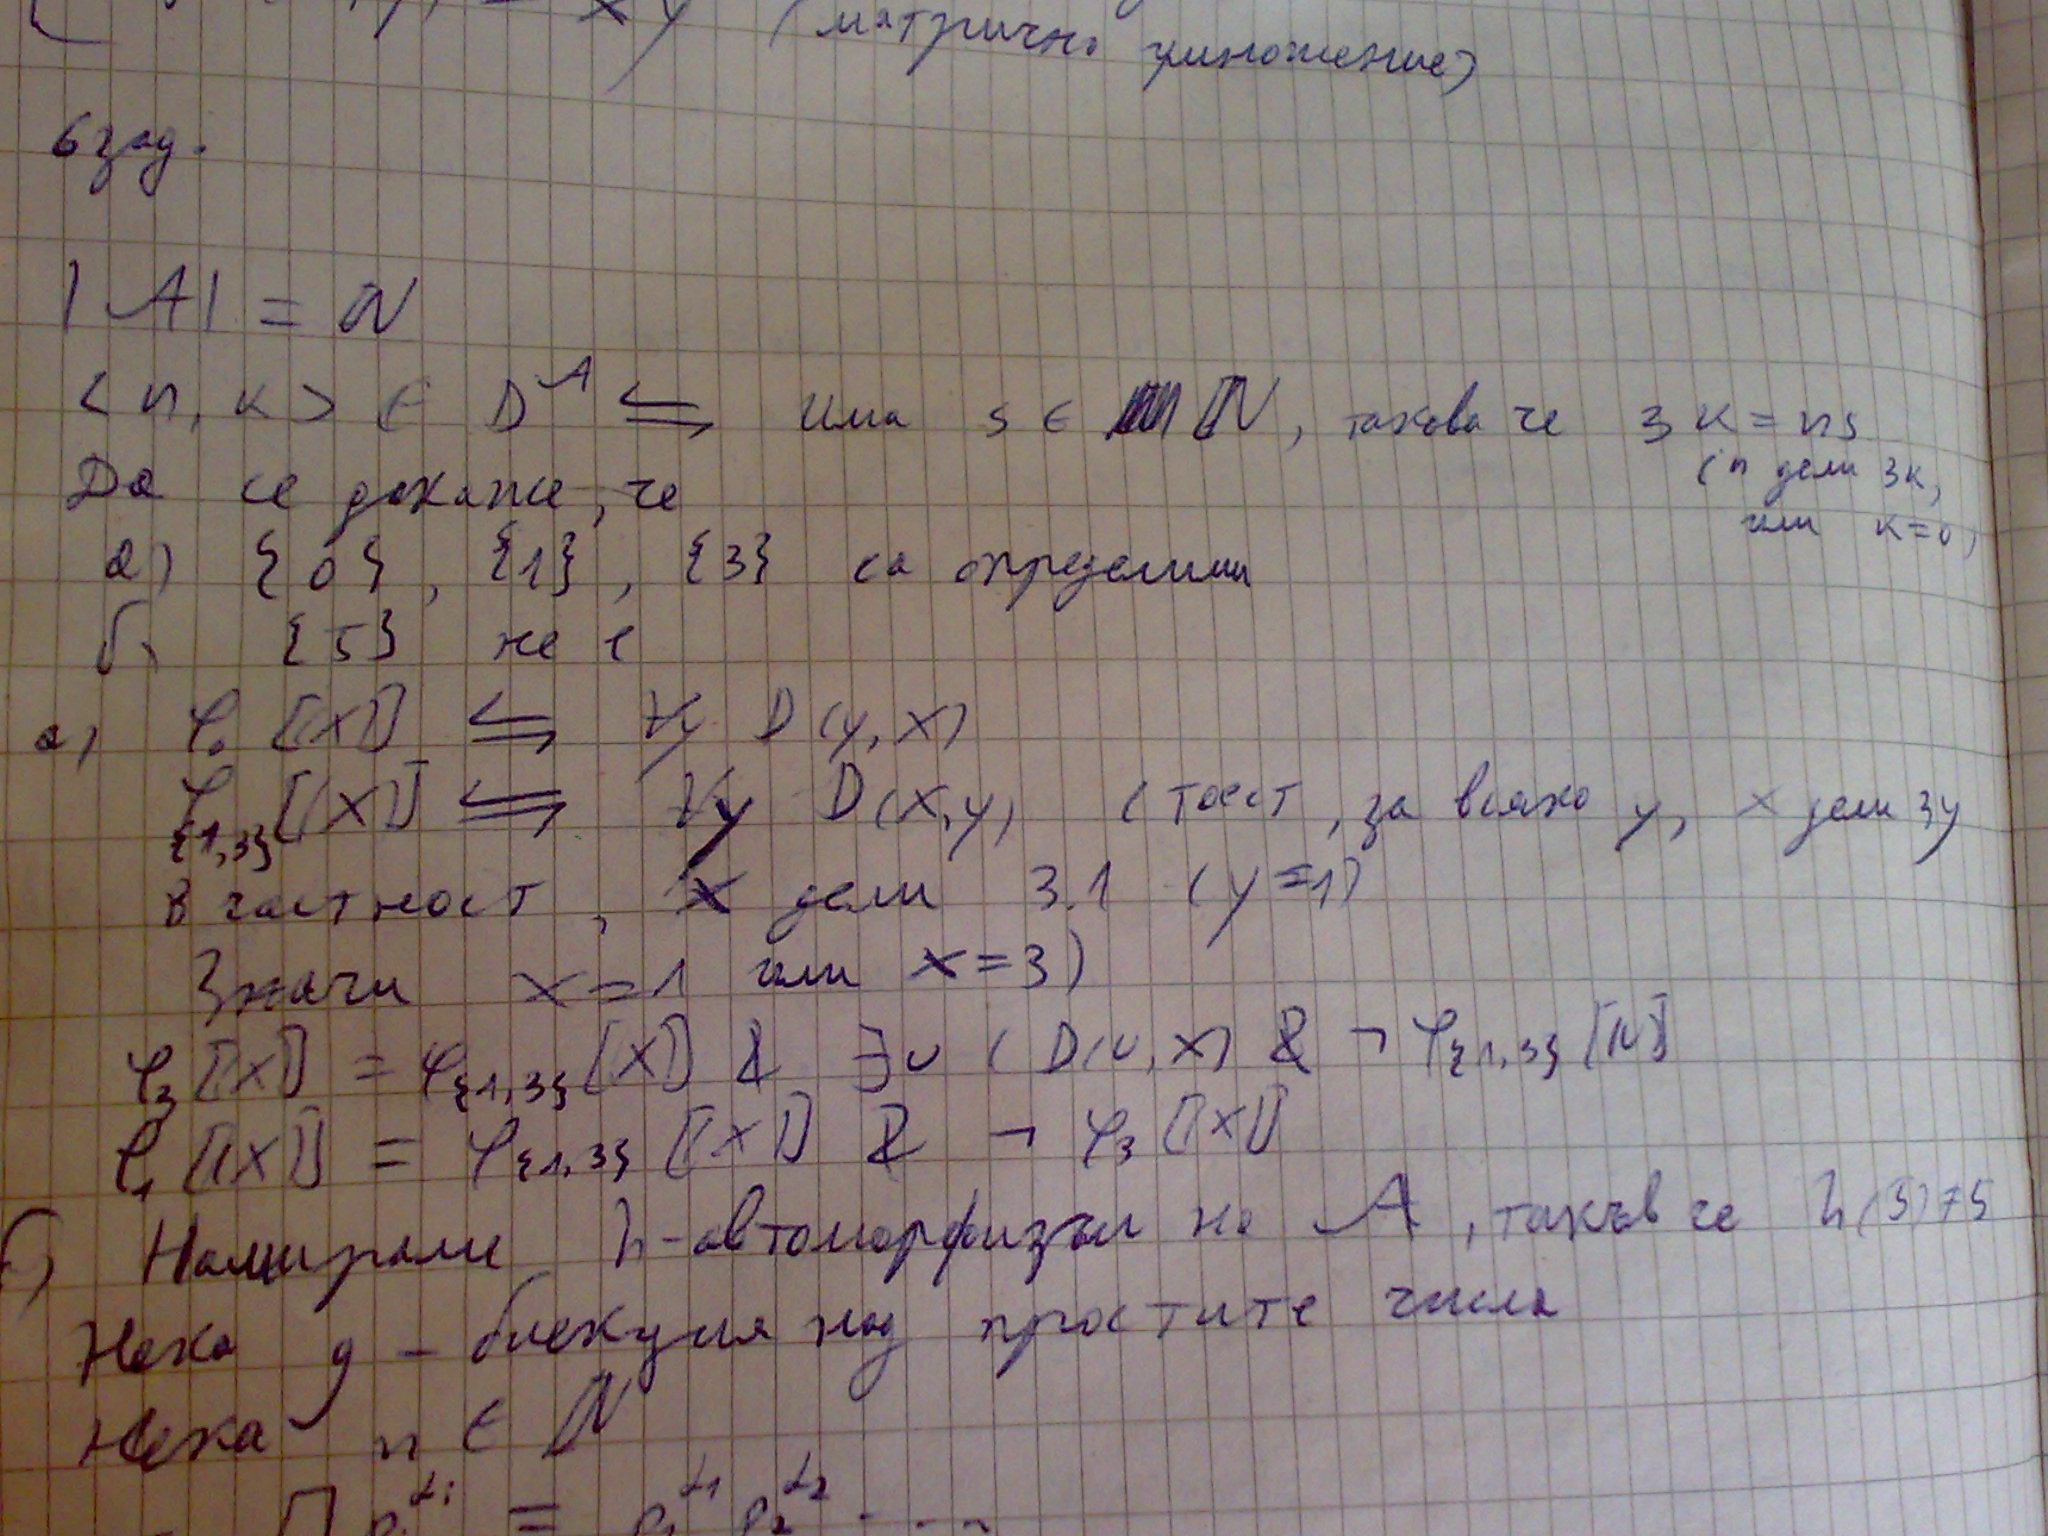 xy (матрично умножение)
6 зад.
|A| = ℕ
<n, k> ∈ D^A ⇌ има s ∈ ℕ, такова че 3k = ns
(n дели 3k,
или k=0)
Да се докаже, че
а) {0}, {1}, {3} са определими
б) {5} не е
а) φ₀ ⟦x⟧ ⇌ ∀y D(y, x)
φ_{1,3} ⟦x⟧ ⇌ ∀y D(x, y) (тоест, за всяко y, x дели 3y
в частност, x дели 3.1 (y=1)
Значи x=1 или x=3)
φ₃ ⟦x⟧ = φ_{1,3} ⟦x⟧ & ∃u (D(u, x) & ¬ φ_{1,3} ⟦u⟧
φ₁ ⟦x⟧ = φ_{1,3} ⟦x⟧ & ¬ φ₃ ⟦x⟧
б) Намираме h-автоморфизъм на A, такъв че h(5)≠5
Нека g - биекция над простите числа
Нека n ∈ ℕ
∏ pᵢ^αᵢ = p₁^α₁ p₂^α₂ ....